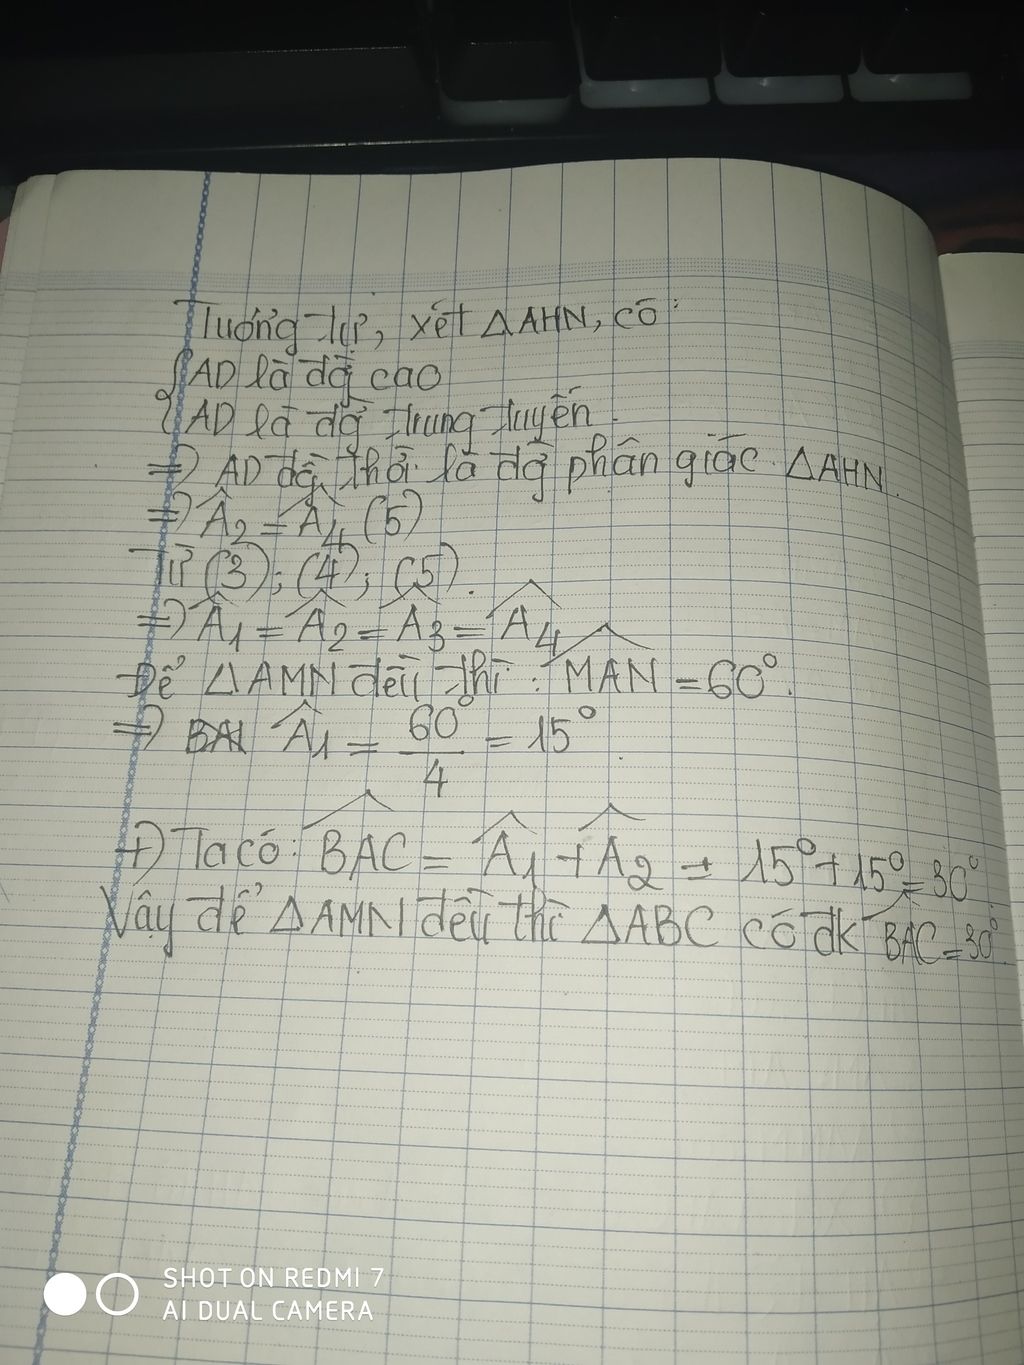 Tương tự, xét ΔAHN, có:
{AD là đg̀ cao
{AD là đg̀ trung tuyến.
=> AD đg̀ thời là đg̀ phân giác ΔAHN.
=> Â2 = Â4 (5)
Từ (3); (4); (5).
=> Â1 = Â2 = Â3 = Â4
Để ΔAMN đều thì: MAN = 60°.
=> Â1 = 60°/4 = 15°
+) Ta có: BAC = Â1 + Â2 = 15° + 15° = 30°
Vậy để ΔAMN đều thì ΔABC có đk BAC = 30°.
SHOT ON REDMI 7
AI DUAL CAMERA